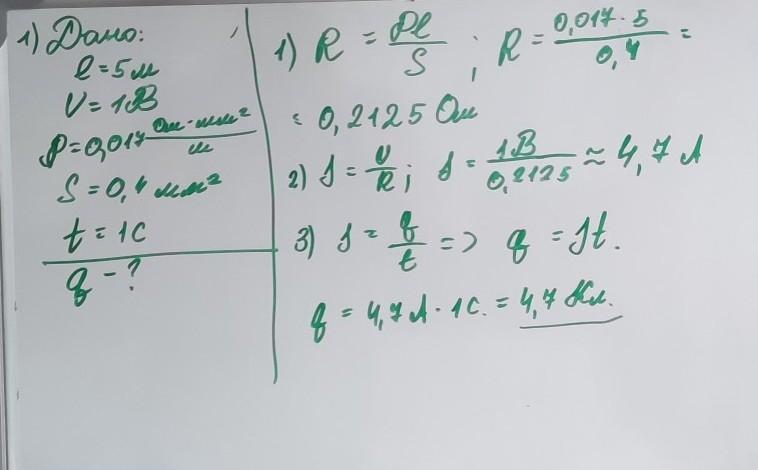 1) Дано:
l = 5 м
U = 1 В
ρ = 0,017 Ом·мм²/м
S = 0,4 мм²
t = 1 с
q - ?
1) R = ρl/S ; R = 0,017·5/0,4 =
= 0,2125 Ом
2) I = U/R ; I = 1В/0,2125 ≈ 4,7 А
3) I = q/t => q = It.
q = 4,7 А · 1с. = 4,7 Кл.